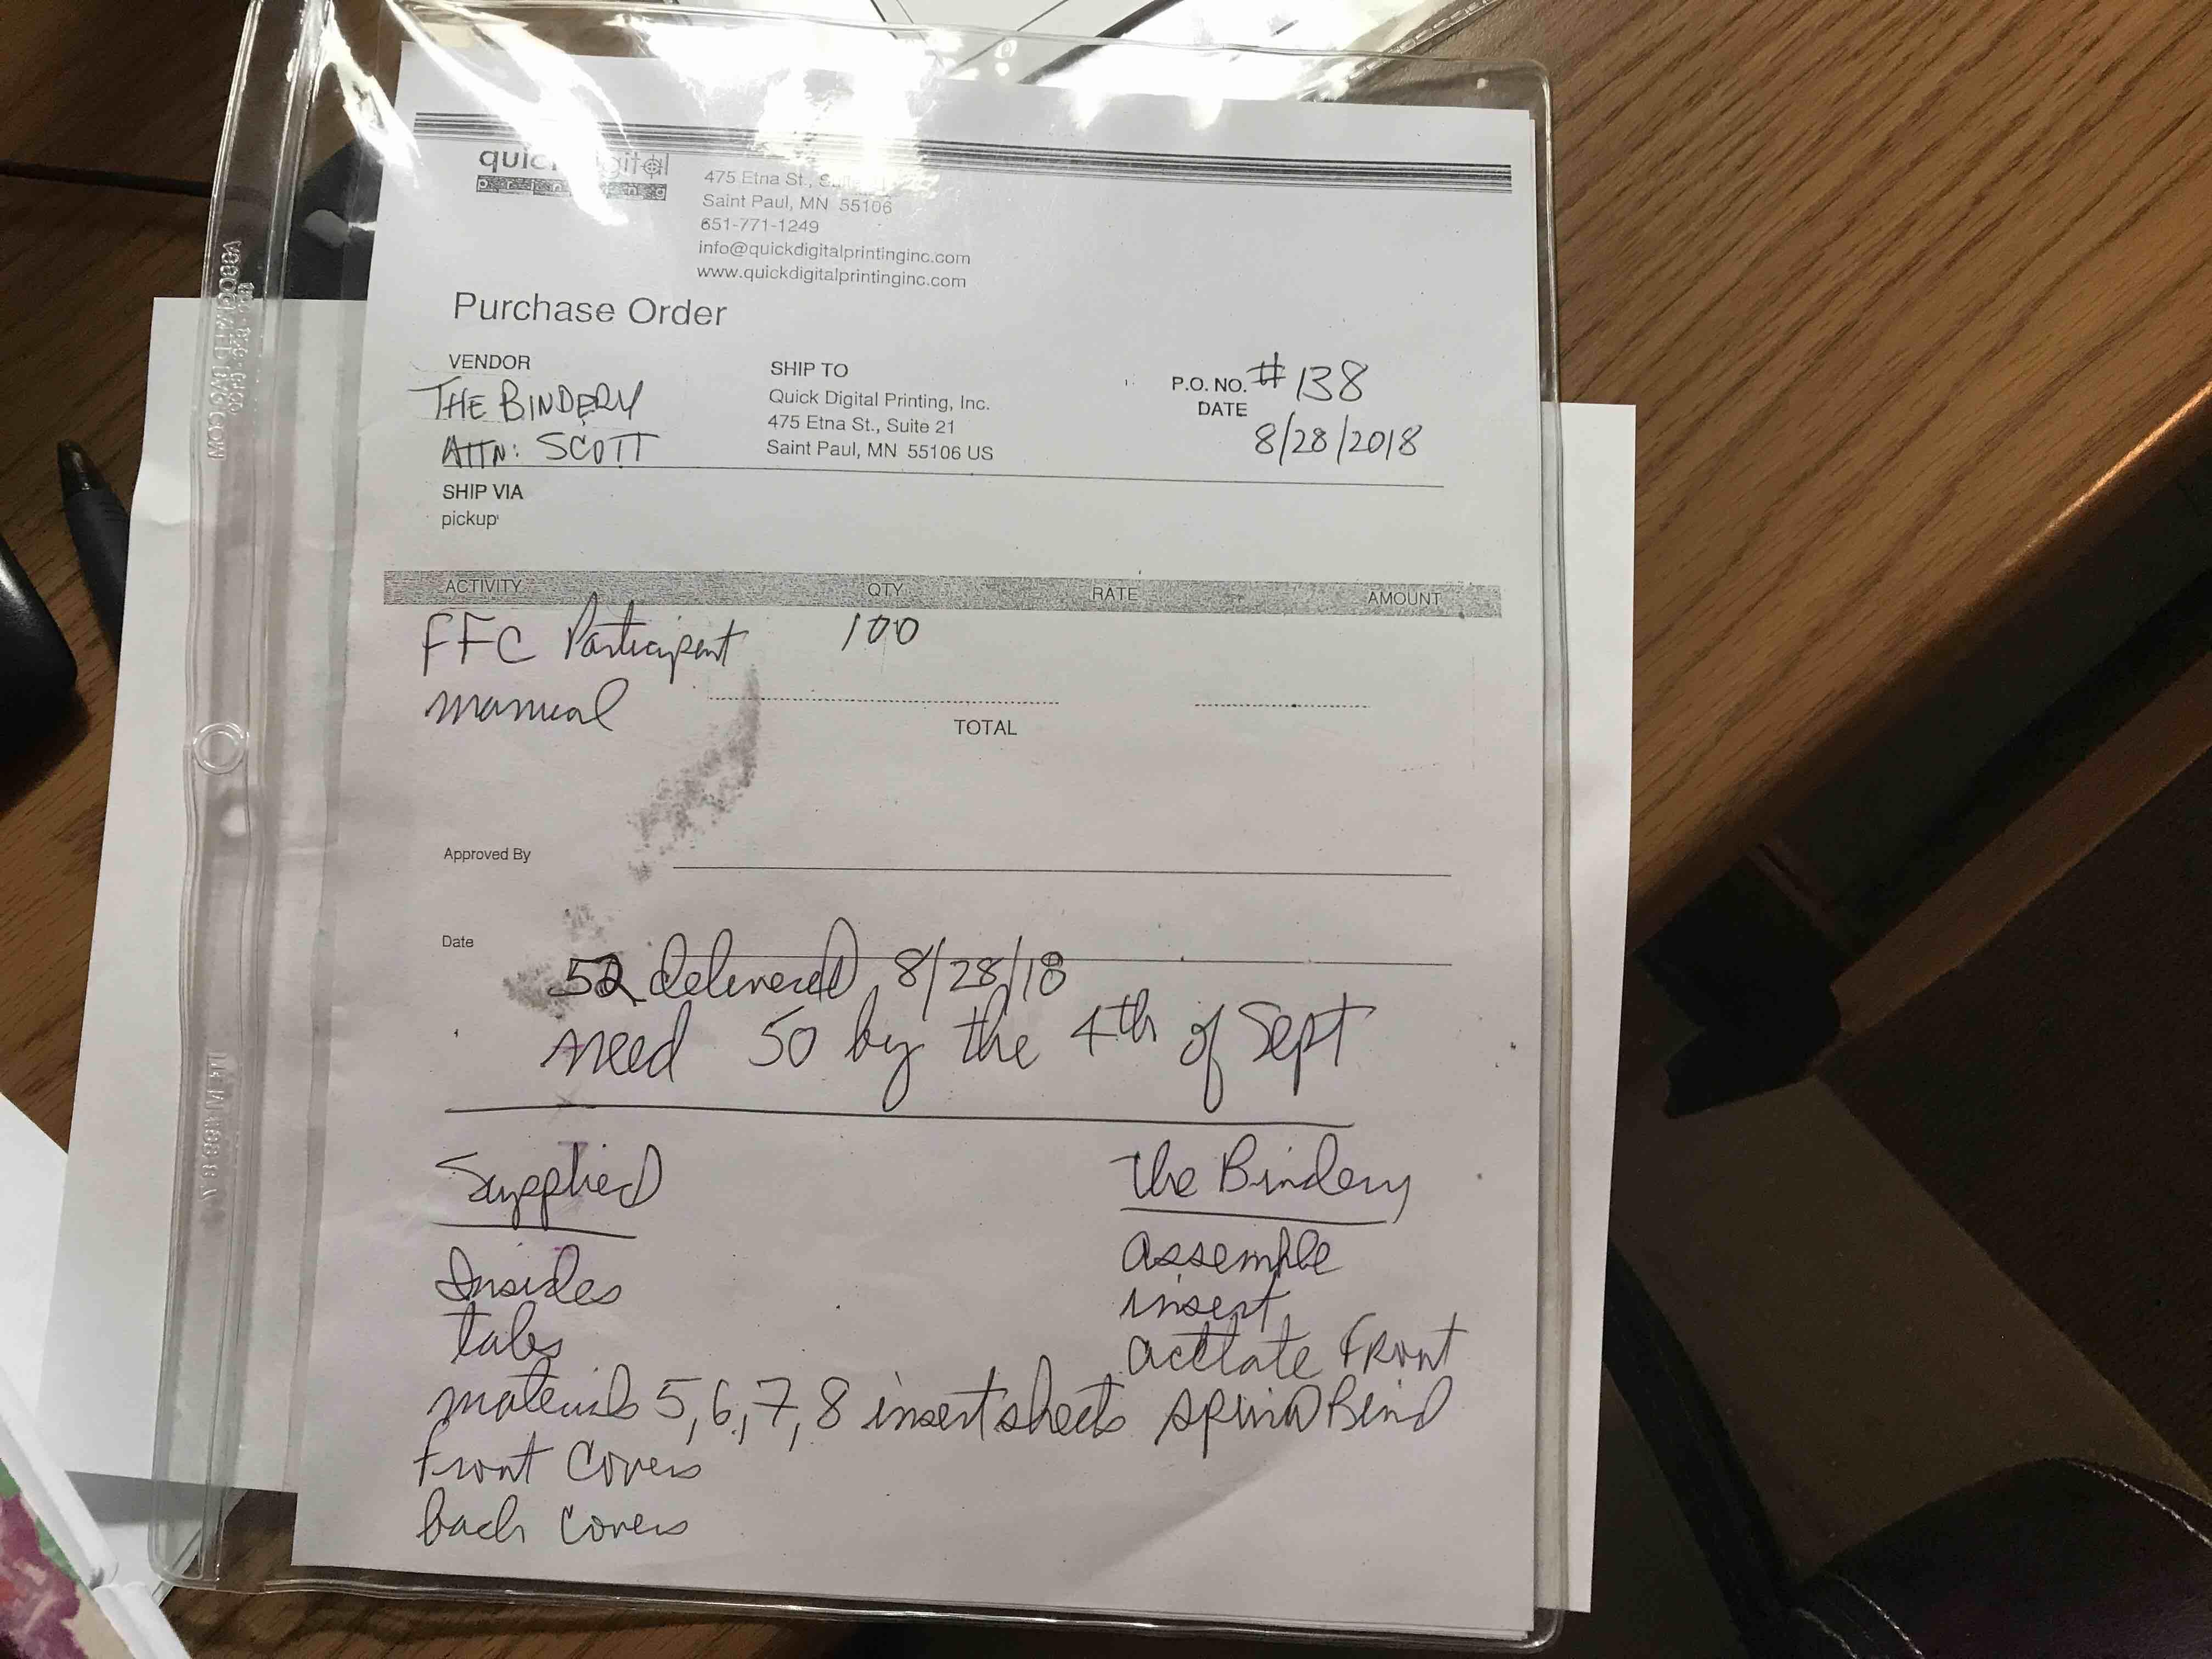 quick digital
printing
475 Etna St., Suite 21
Saint Paul, MN 55106
651-771-1249
info@quickdigitalprintinginc.com
www.quickdigitalprintinginc.com
Purchase Order
VENDOR
THE BINDERY
ATTN: SCOTT
SHIP TO
Quick Digital Printing, Inc.
475 Etna St., Suite 21
Saint Paul, MN 55106 US
P.O. NO. # 138
DATE
8/28/2018
SHIP VIA
pickup
ACTIVITY QTY RATE AMOUNT
FFC Participent 100
manual
TOTAL
Approved By
Date
52 delivered 8/28/18
need 50 by the 4th of Sept
Supplied
Insides
tabs
materials 5,6,7,8 insert sheets
Front Covers
back covers
The Bindery
assemble
insert
acetate Front
spiral Bind